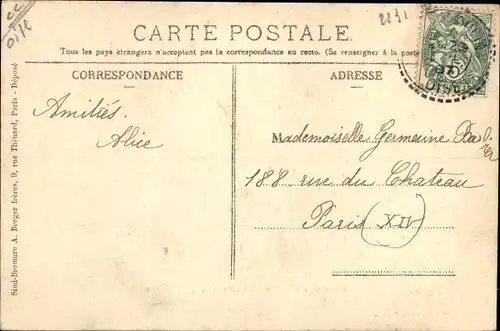 CARTE POSTALE
Tous les pays étrangers n'acceptent pas la correspondance au recto. (Se renseigner à la poste
CORRESPONDANCE
ADRESSE
Amitiés.
Alice
Mademoiselle Germaine
188 rue du Chateau
Paris (XIV)
Simi-Bromure A. Breger frères, 9, rue Thénard, Paris - Déposé